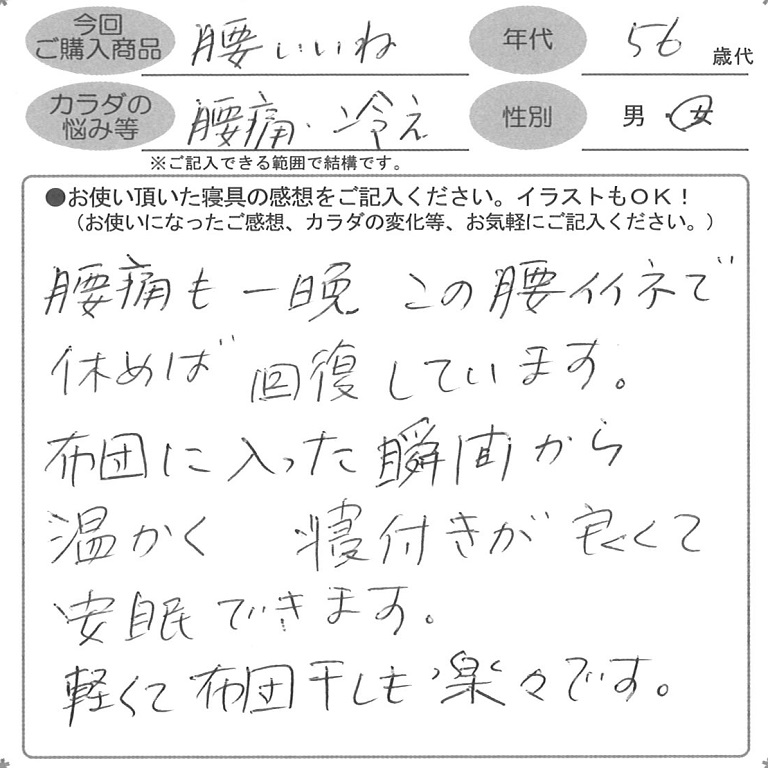 今回
ご購入商品
腰いいね
年代
56
歳代
カラダの
悩み等
腰痛・冷え
性別
男・女
※ご記入できる範囲で結構です。
●お使い頂いた寝具の感想をご記入ください。イラストもOK！
（お使いになったご感想、カラダの変化等、お気軽にご記入ください。）
腰痛も一晩 この腰イイネで
休めば 回復しています。
布団に入った瞬間から
温かく 寝付きが良くて
安眠できます。
軽くて布団干しも楽々です。